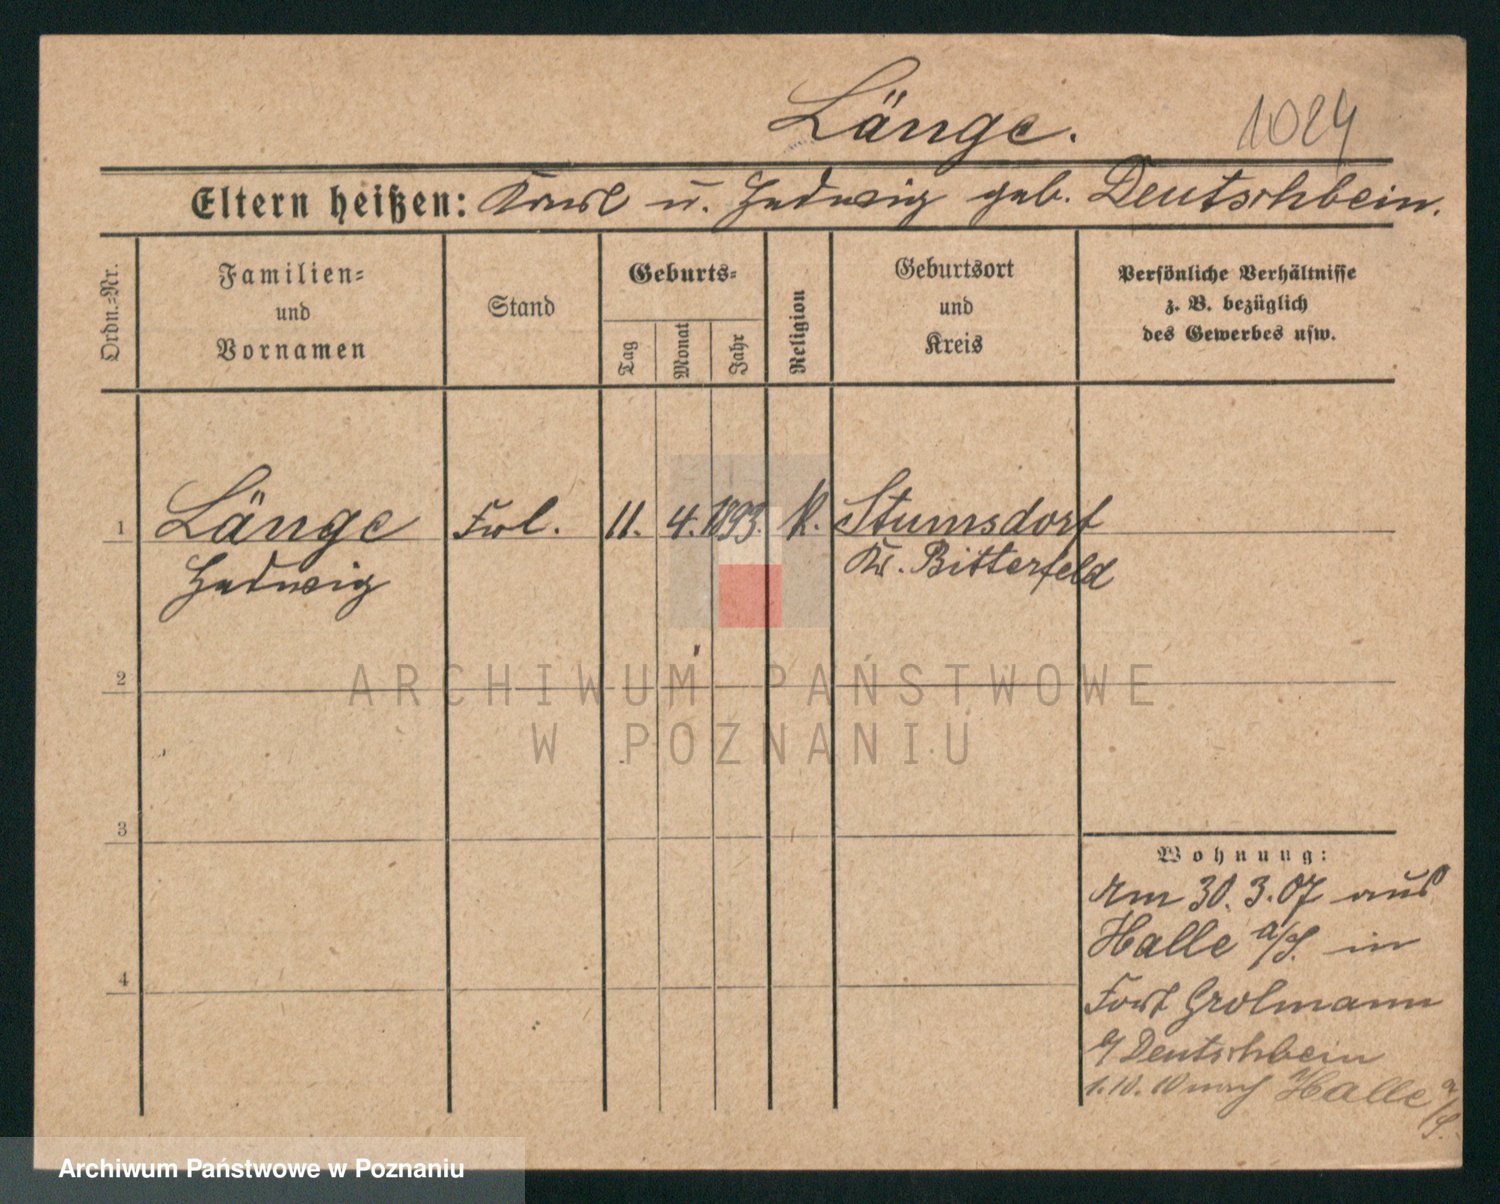 Länge.
1024
Eltern heißen: Karl u. Hedwig geb. Deutschbein.
Ordn.=Nr.
Familien=
und
Vornamen
Stand
Geburts=
Tag
Monat
Jahr
Religion
Geburtsort
und
Kreis
Persönliche Verhältnisse
z. B. bezüglich
des Gewerbes usw.
1 Länge Frl. 11. 4. 1893. k. Stumsdorf
Hedwig Kr. Bitterfeld
2
3
4
Wohnung:
Am 30.3.07 aus
Halle a/S. in
Fort Grolmann
b/ Deutschbein
1.10.10 nach Halle a/S.
ARCHIWUM PAŃSTWOWE
W POZNANIU
Archiwum Państwowe w Poznaniu